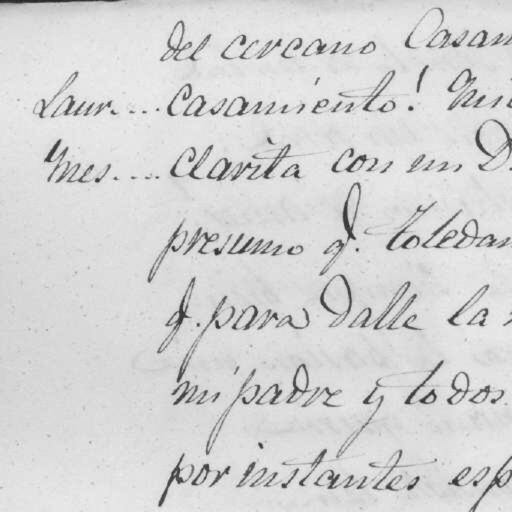 del cercano Casam
Laur.... casamiento!
Ynes.... Clarita con un D.
presumo q. toledan
q. para dalle la
mi padre y todos
por instantes esp